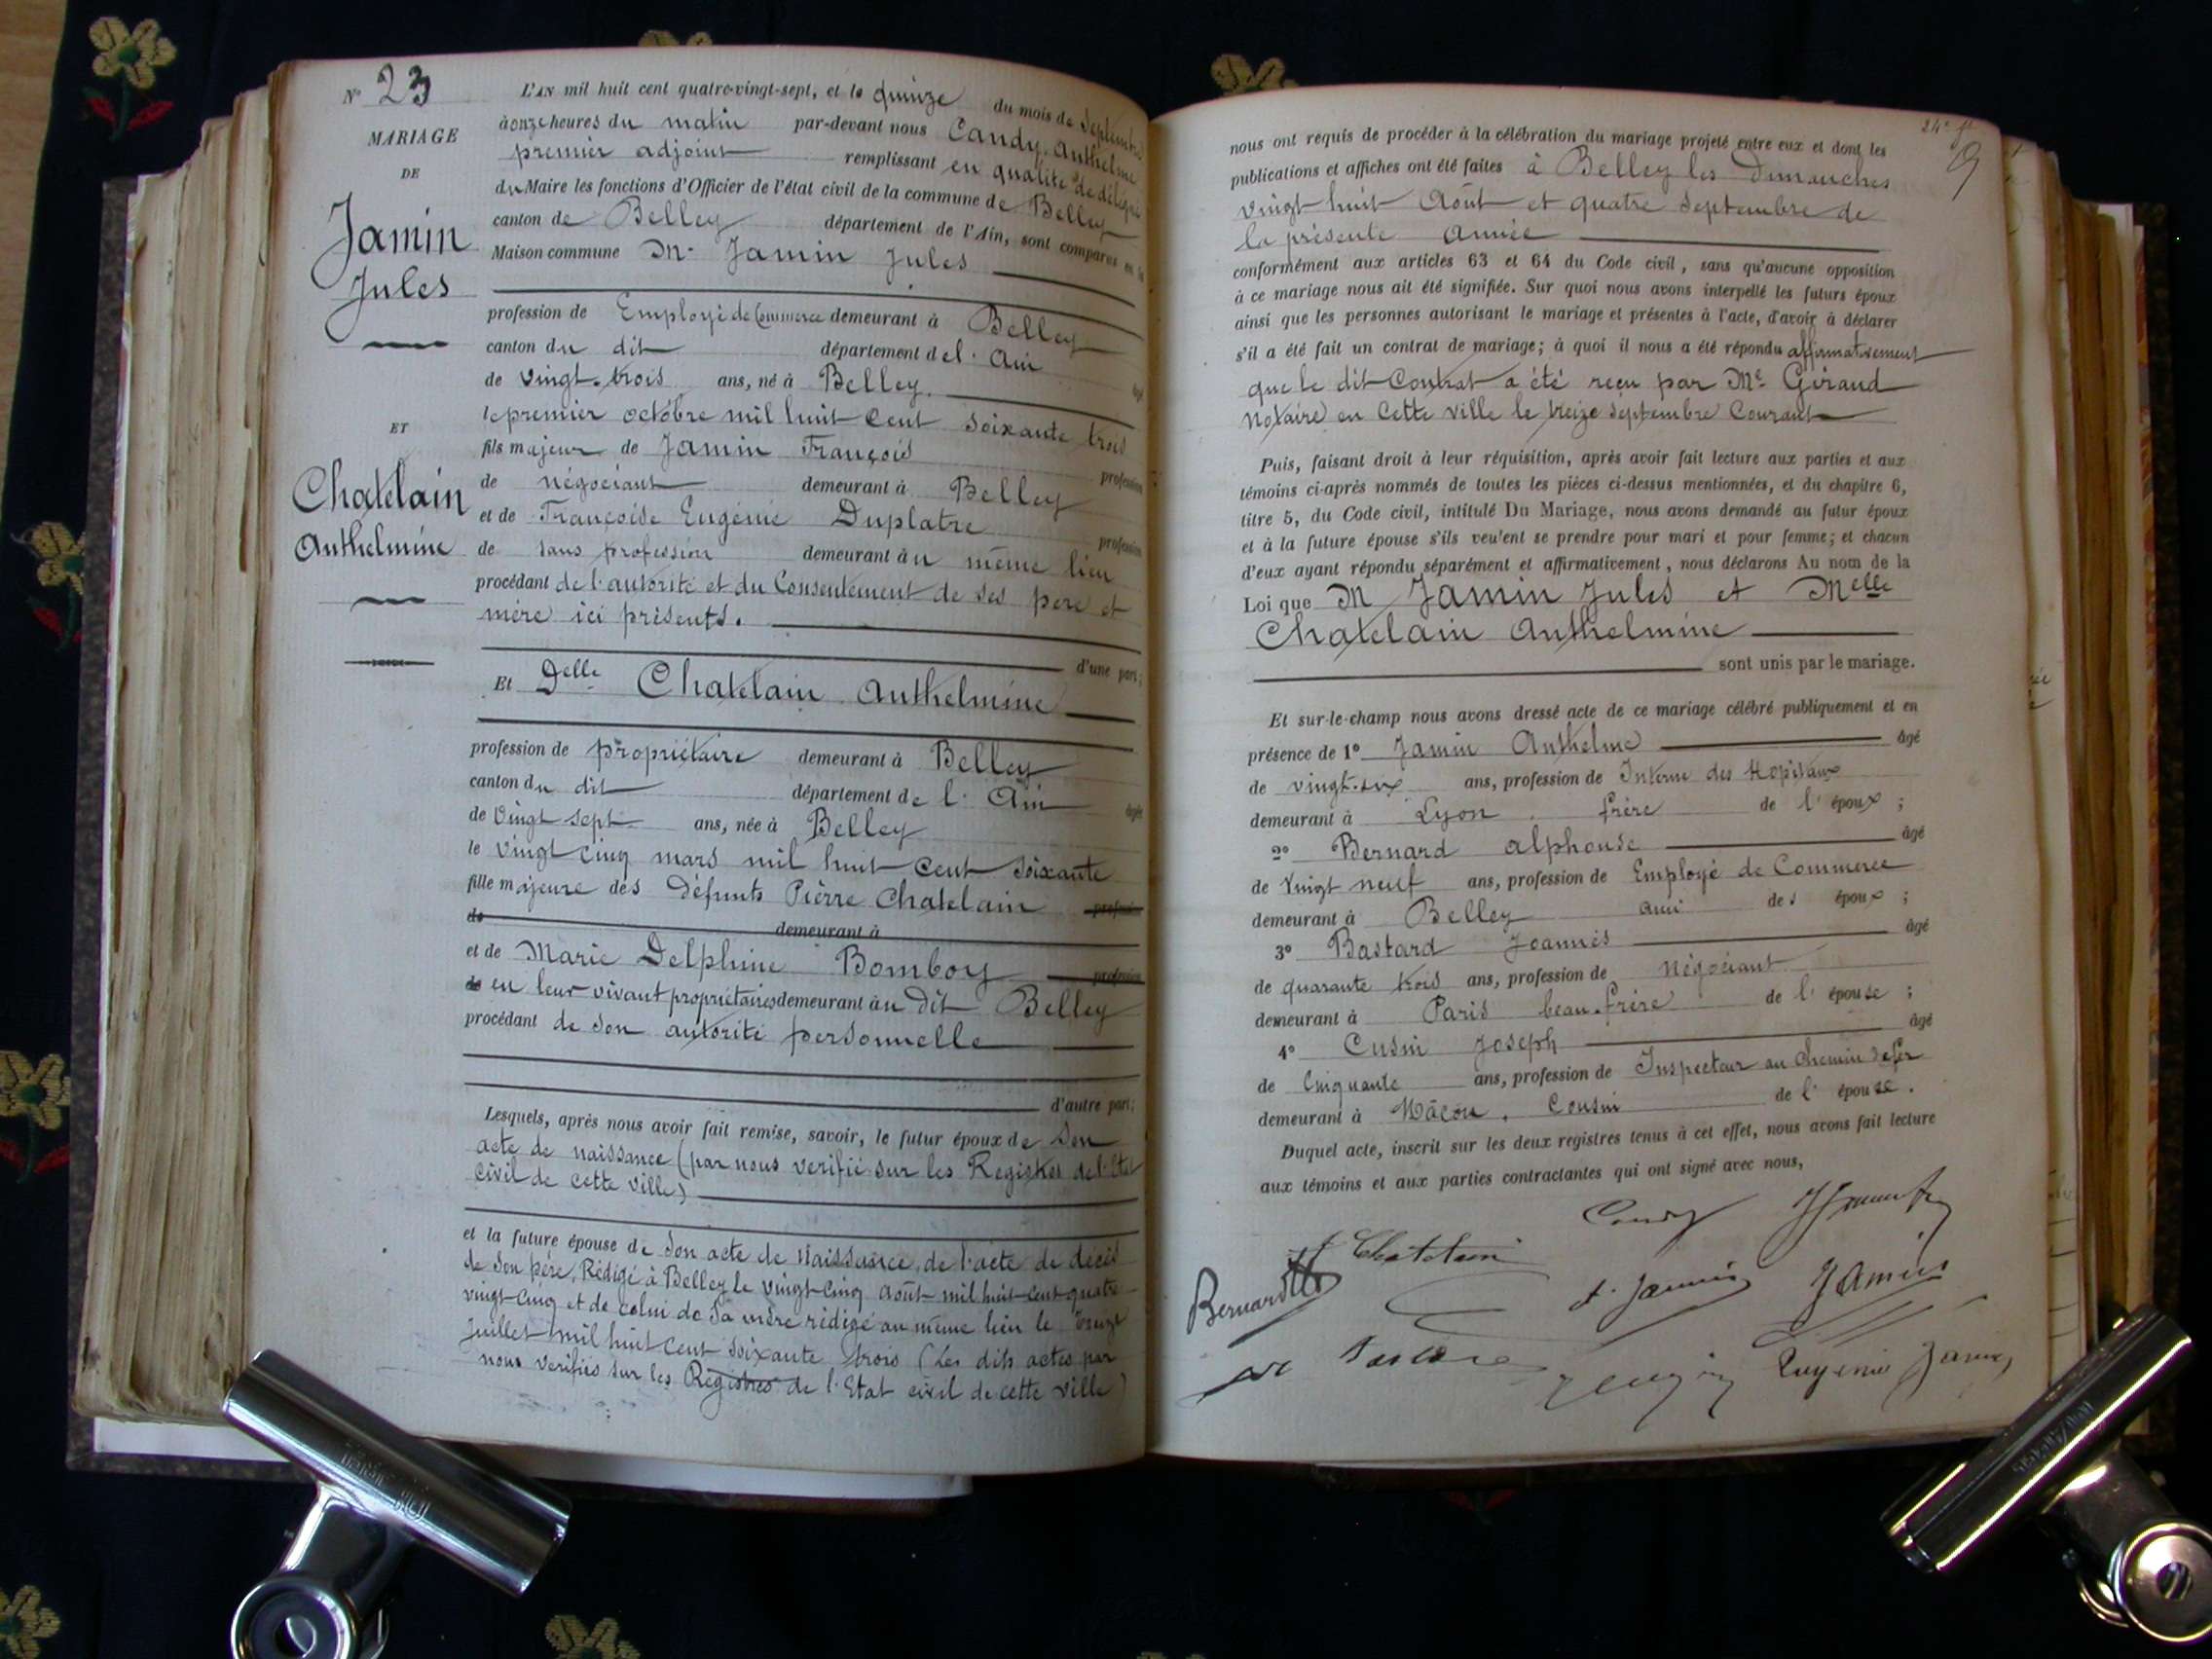 N° 23
MARIAGE
DE
Jamin
Jules
ET
Chatelain
Anthelmine
L'AN mil huit cent quatre-vingt-sept, et le quinze du mois de Septembre
à onze heures du matin par-devant nous Candy Anthelme
premier adjoint remplissant en qualité de délégué
du Maire les fonctions d'Officier de l'état civil de la commune de Belley
canton de Belley département de l'Ain, sont comparus en la
Maison commune Mr Jamin Jules
profession de Employé de Commerce demeurant à Belley
canton du dit département de l'Ain âgé
de vingt-trois ans, né à Belley.
le premier octobre mil huit cent soixante trois
fils majeur de Jamin François profession
de négociant demeurant à Belley
et de Françoise Eugénie Duplatre profession
de sans profession demeurant au même lieu
procédant de l'autorité et du Consentement de ses père et
mère ici présents.
d'une part;
Et Delle Chatelain Anthelmine
profession de propriétaire demeurant à Belley
canton du dit département de l'Ain âgée
de vingt sept ans, née à Belley
le vingt cinq mars mil huit cent soixante
fille majeure des défunts Pierre Chatelain profession
de demeurant à
et de Marie Delphine Bomboy profession
de en leur vivant propriétaires demeurant au dit Belley
procédant de son autorité personnelle
d'autre part;
Lesquels, après nous avoir fait remise, savoir, le futur époux de son
acte de naissance (par nous verifié sur les Registres de l'Etat
Civil de cette ville)
et la future épouse de son acte de naissance, de l'acte de décès
de son père, Rédigé à Belley le vingt-cinq août mil huit cent quatre
vingt-cinq et de celui de sa mère rédigé au même lieu le treize
Juillet mil huit cent soixante trois (Les dits actes par
nous verifiés sur les Registres de l'Etat civil de cette ville)
24e ft
nous ont requis de procéder à la célébration du mariage projeté entre eux et dont les
publications et affiches ont été faites à Belley les Dimanches
vingt huit Août et quatre Septembre de
la présente année
conformément aux articles 63 et 64 du Code civil, sans qu'aucune opposition
à ce mariage nous ait été signifiée. Sur quoi nous avons interpellé les futurs époux
ainsi que les personnes autorisant le mariage et présentes à l'acte, d'avoir à déclarer
s'il a été fait un contrat de mariage; à quoi il nous a été répondu affirmativement
que le dit Contrat a été reçu par Me Giraud
Notaire en cette ville le treize Septembre Courant
Puis, faisant droit à leur réquisition, après avoir fait lecture aux parties et aux
témoins ci-après nommés de toutes les pièces ci-dessus mentionnées, et du chapitre 6,
titre 5, du Code civil, intitulé Du Mariage, nous avons demandé au futur époux
et à la future épouse s'ils veulent se prendre pour mari et pour femme; et chacun
d'eux ayant répondu séparément et affirmativement, nous déclarons Au nom de la
Loi que M Jamin Jules et Melle
Chatelain Anthelmine
sont unis par le mariage.
Et sur-le-champ nous avons dressé acte de ce mariage célébré publiquement et en
présence de 1° Jamin Anthelme âgé
de vingt-six ans, profession de Interne des Hopitaux
demeurant à Lyon. frère de l'époux;
2° Bernard Alphonse âgé
de vingt neuf ans, profession de Employé de Commerce
demeurant à Belley ami des époux;
3° Bastard Joannès âgé
de quarante trois ans, profession de Négociant
demeurant à Paris beau-frère de l'épouse;
4° Cusin Joseph âgé
de Cinquante ans, profession de Inspecteur au Chemin de fer
demeurant à Mâcon. Cousin de l'épouse.
Duquel acte, inscrit sur les deux registres tenus à cet effet, nous avons fait lecture
aux témoins et aux parties contractantes qui ont signé avec nous,
Candy
Chatelain
Bernard
A. Jamin
Jamin
Eugénie Jamin